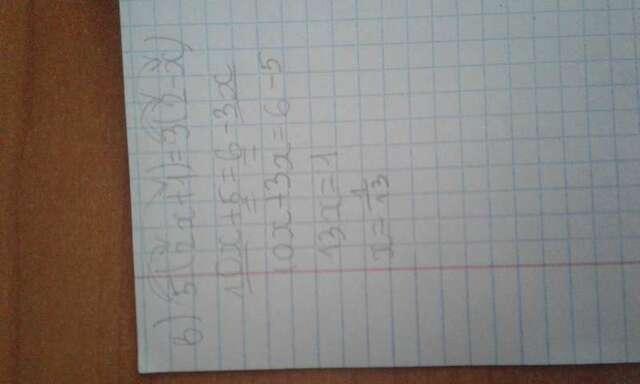 в) 5(2x+1)=3(2-x)
10x+5=6-3x
10x+3x=6-5
13x=1
x=1/13